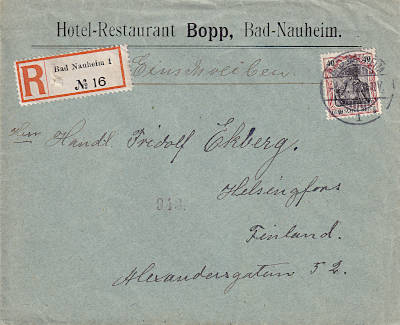 Hotel-Restaurant Bopp, Bad-Nauheim.
R
Bad Nauheim 1
№ 16
Einschreiben
40 40
Herrn Handl. Fridolf Ekberg.
Helsingfors
Finland.
Alexandersgatan 52.